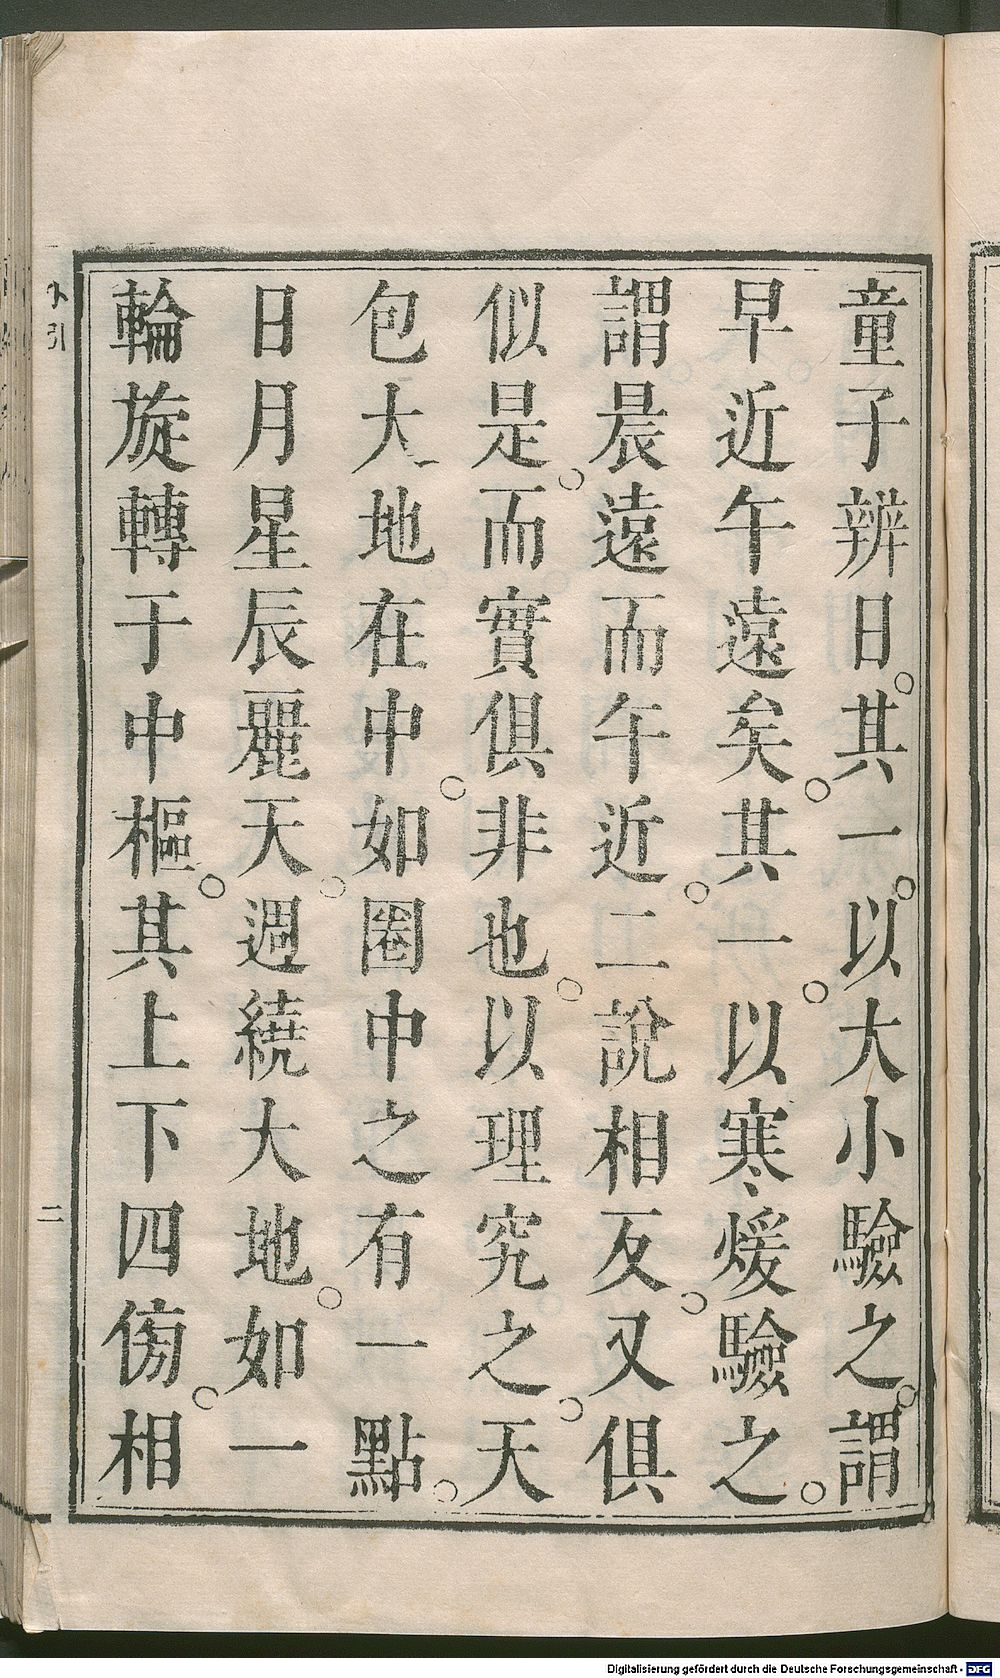 童子辨日。其一。以大小驗之。謂
早近午遠矣。其一。以寒煖驗之。
謂晨遠而午近。二說相反。又俱
似是。而實俱非也。以理究之。天
包大地在中。如圈中之有一點。
日月星辰麗天。週繞大地。如一
輪旋轉于中樞。其上下四傍。相
小引
二
Digitalisierung gefördert durch die Deutsche Forschungsgemeinschaft - DFG